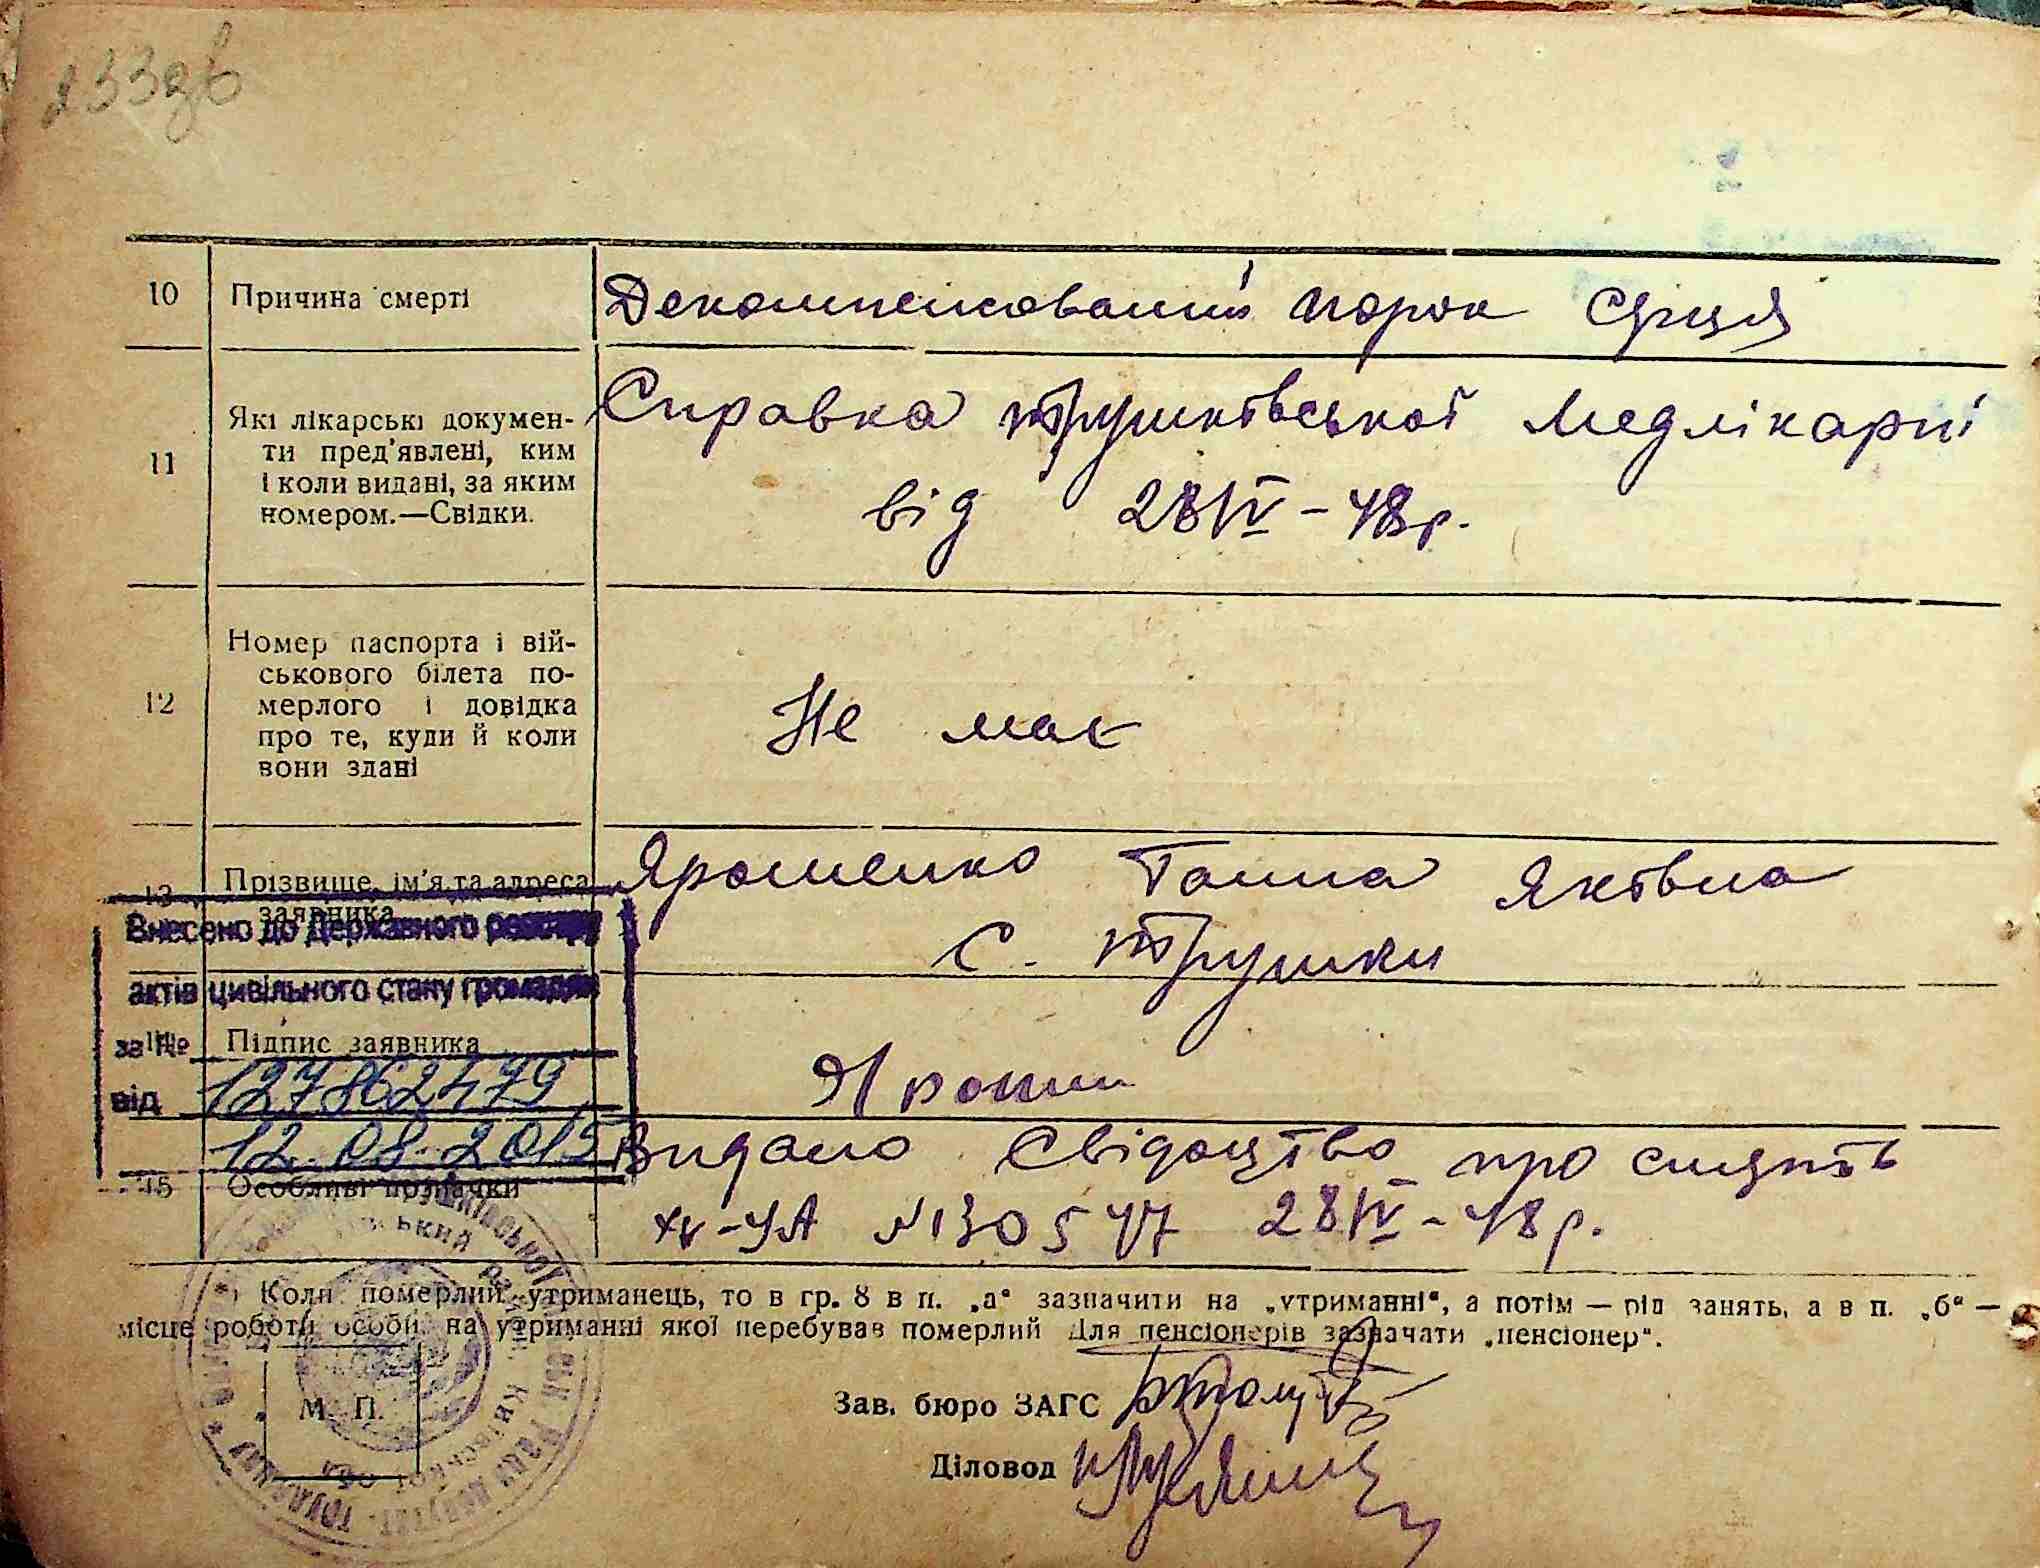 233зв
10 Причина смерті Декомпенсований порок серця
11 Які лікарські докумен-
ти пред'явлені, ким
і коли видані, за яким
номером.—Свідки.
Справка Трушківської Медлікарні
від 28/IV – 48р.
12 Номер паспорта і вій-
ськового білета по-
мерлого і довідка
про те, куди й коли
вони здані
Не має
13 Прізвище, ім'я та адреса
заявника
Ярошенко Ганна Яківна
с. Трушки
Внесено до Державного реєстру
актів цивільного стану громадян
за №
127862479
від
12.08.2015
Підпис заявника Ярошен
15 Особливі позначки
Видано Свідоцтво про смерть
№130547 28/IV – 48р.
Коли померлий утриманець, то в гр. 8 в п. „а“ зазначити на „утриманні“, а потім — рід занять, а в п. „б“ —
місце роботи особи, на утриманні якої перебував померлий Для пенсіонерів зазначати „пенсіонер“.
М. П.
Зав. бюро ЗАГС
Діловод